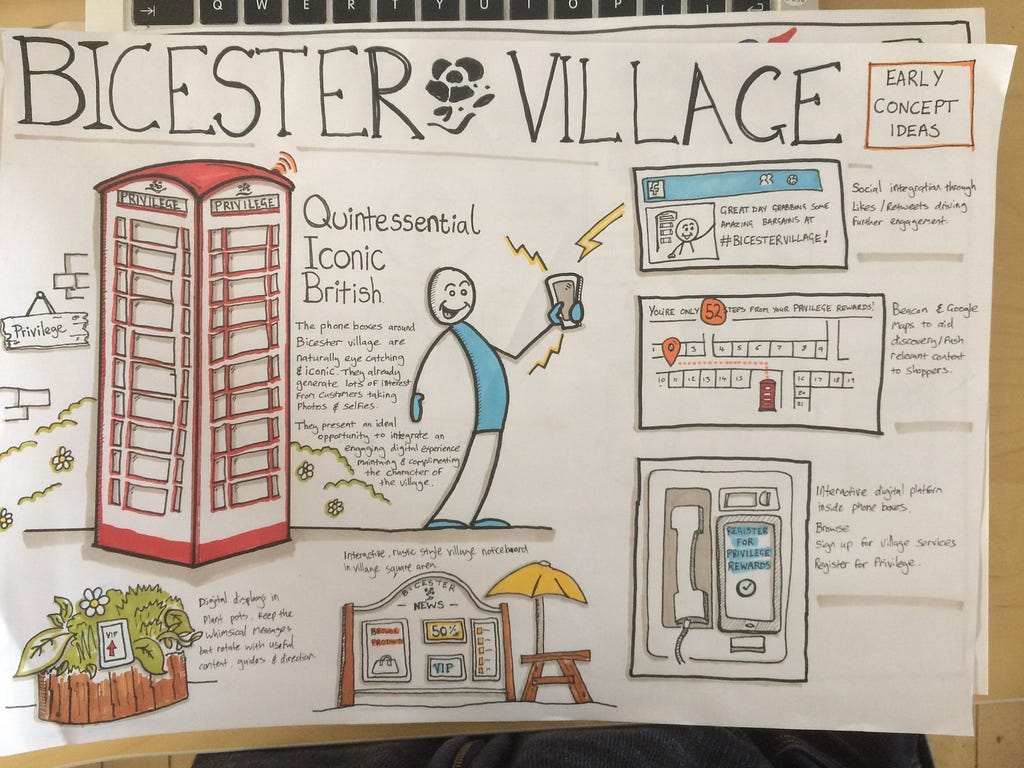 Q W E R T Y U I O P
BICESTER VILLAGE
EARLY
CONCEPT
IDEAS
PRIVILEGE PRIVILEGE
Privilege
Quintessential
Iconic
British
The phone boxes around
Bicester village are
naturally eye catching
& iconic. They already
generate lots of interest
from customers taking
photos & selfies.
They present an ideal
opportunity to integrate an
engaging digital experience
maintning & complimenting
the character of
the village.
GREAT DAY GRABBING SOME
AMAZING BARGAINS AT
#BICESTERVILLAGE!
Social integration through
Likes/Retweets driving
further engagement.
YOU'RE ONLY 52 STEPS FROM YOUR PRIVILEGE REWARDS!
1 3 4 5 6 7 8 9
10 11 12 13 14 15 16 17 18 19
20
21
Beacon & Google
Maps to aid
discovery/Push
relevant content
to shoppers.
REGISTER
FOR
PRIVILEGE
REWARDS
Interactive digital platform
inside phone boxes.
Browse
Sign up for village services
Register for Privilege.
Digital displays in
plant pots, keep the
whimsical messages
but rotate with useful
content, guides & direction.
VIP
Interactive, rustic style village noticeboard
in village square area.
BICESTER
NEWS
BROWSE
PRODUCTS
50%
VIP